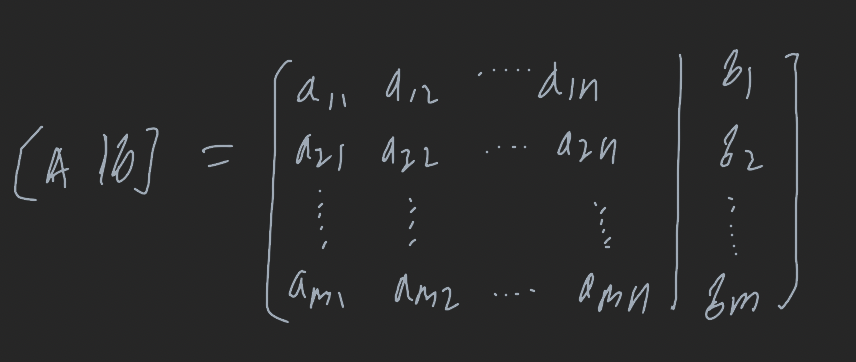 [A |b] = [ a11 a12 ..... a1n | b1 ]
a21 a22 .... a2n | b2
⋮ ⋮ ⋮ | ⋮
am1 am2 .... amn | bm